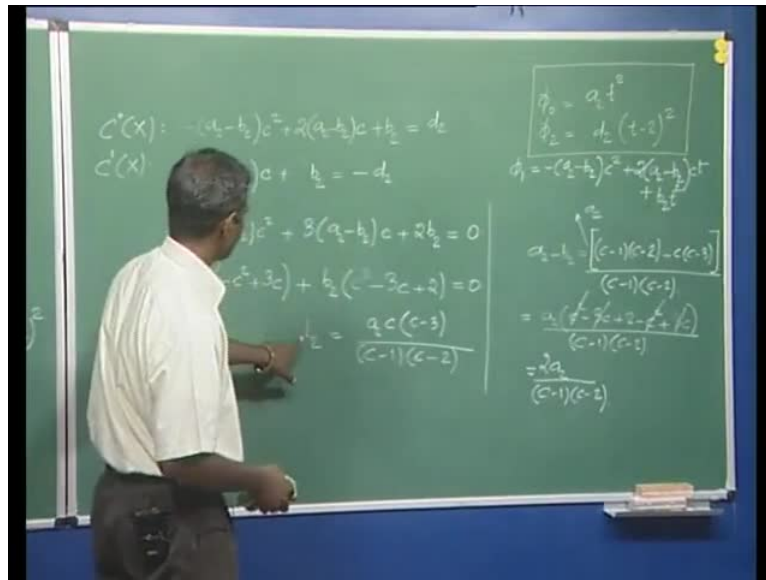 C⁰(X): -(a₂-b₂)c² + 2(a₂-b₂)c + b₂ = d₂
C¹(X): )c + b₂ = -d₂
)c² + 3(a₂-b₂)c + 2b₂ = 0
-c²+3c) + b₂(c²-3c+2) = 0
b₂ = a₂c(c-3) / (c-1)(c-2)
ϕ₀ = a₂t²
ϕ₂ = d₂(t-2)²
ϕ₁ = -(a₂-b₂)c² + 2(a₂-b₂)ct
+ b₂t²
a₂
a₂-b₂ = [(c-1)(c-2) - c(c-3)] / (c-1)(c-2)
= a₂(c²-3c+2-c²+3c) / (c-1)(c-2)
= 2a₂ / (c-1)(c-2)